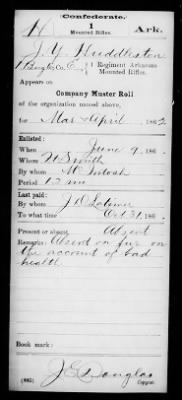 Confederate.
H 1 Ark.
Mounted Rifles.
J. Y. Huddleston
Co. E, 1 Regiment Arkansas
Mounted Rifles.
Appears on
Company Muster Roll
of the organization named above,
for Mar & April, 1862.
Enlisted:
When June 9, 186 .
Where Ft Smith
By whom McIntosh
Period 12 mo
Last paid:
By whom J. D. Latimer
To what time Oct 31, 186 .
Present or absent Absent
Remarks: Absent on fur on
the account of bad
health
Book mark:
J E Douglas
(635) Copyist.